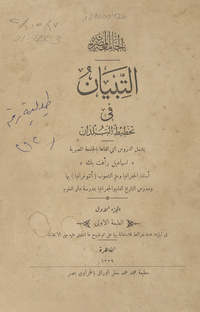 الجامعة المصرية
التبيان
في
تخطيط البلدان
يشمل الدروس التي القاها بالجامعة المصرية
« اسماعيل رأفت بك »
أستاذ الجغرافيا وعلم الشعوب (اثنوغرافيا) بها
ومدرس التاريخ العام والجغرافيا بمدرسة دار العلوم
الجزء الاول
الطبعة الاولى
القاهرة
١٣٢٩
مطبعة محمد محمد مطر الوراق بالحمزاوي بمصر